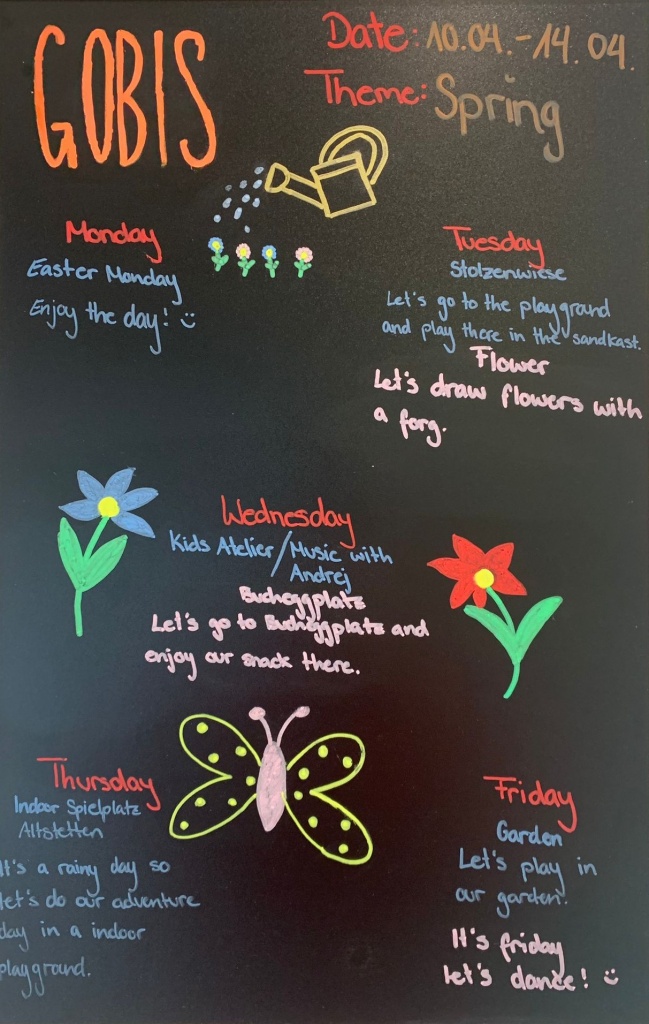 GOBIS
Date: 10.04.-14.04.
Theme: Spring
Monday
Easter Monday
Enjoy the day! :)
Tuesday
Stolzenwiese
Let's go to the playground
and play there in the sandkast.
Flower
Let's draw flowers with
a forg.
Wednesday
Kids Atelier/Music with
Andrej
Bucheggplatz
Let's go to Bucheggplatz and
enjoy our snack there.
Thursday
Indoor Spielplatz
Altstetten
It's a rainy day so
let's do our adventure
day in a indoor
playground.
Friday
Garden
Let's play in
our garden.
It's friday
let's dance! :)